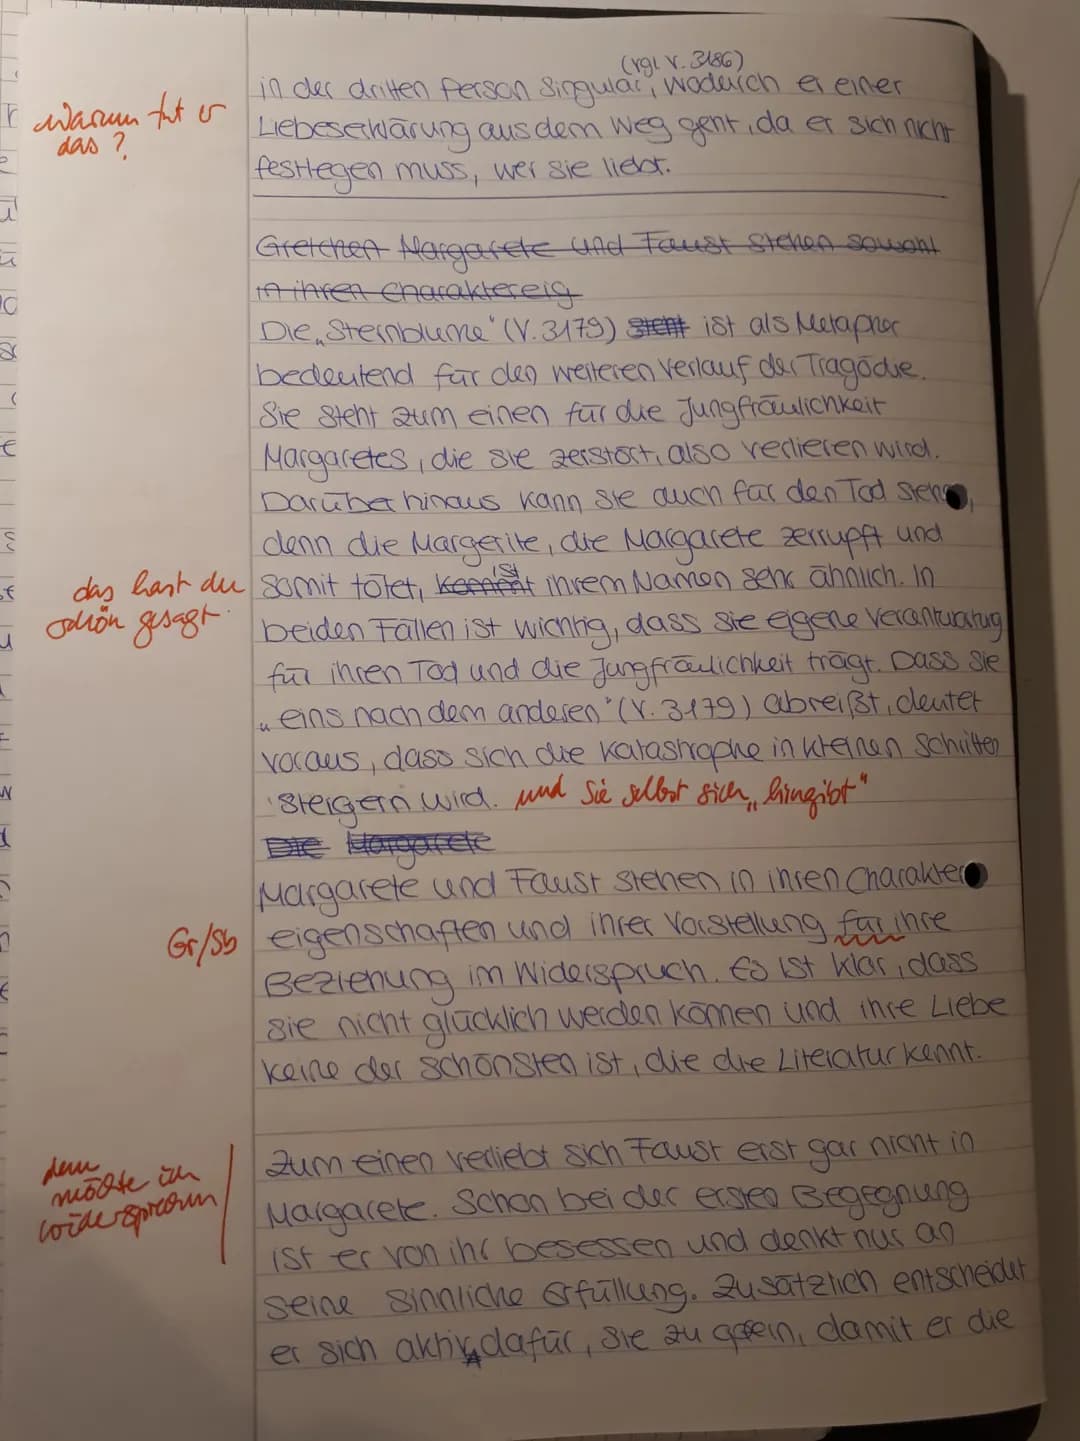 (vgl. V. 3186)
in der dritten Person Singular, wodurch er einer
Warum tut er
das?
Liebeserklärung aus dem Weg geht, da er sich nicht
festlegen muss, wer sie liebt.
Gretchen Margarete und Faust stehen sowohl
in ihren Charaktereig
Die „Sternblume" (V. 3179) steht ist als Metapher
bedeutend für den weiteren Verlauf der Tragödie.
Sie steht zum einen für die Jungfräulichkeit
Margaretes, die sie zerstört, also verlieren wird.
Darüber hinaus kann sie auch für den Tod stehen,
denn die Margerite, die Margarete zerrupft und
das hast du
schön gesagt.
somit tötet, kommt ist ihrem Namen sehr ähnlich. In
beiden Fällen ist wichtig, dass sie eigene Verantwortung
für ihren Tod und die Jungfräulichkeit trägt. Dass sie
„eins nach dem anderen" (V. 3179) abreißt, deutet
voraus, dass sich die Katastrophe in kleinen Schritten
steigern wird. und sie selbst sich „hingibt"
Die Margarete
Margarete und Faust stehen in ihren Charakter
Gr/Sb
eigenschaften und ihrer Vorstellung für ihre
Beziehung im Widerspruch. Es ist klar, dass
sie nicht glücklich werden können und ihre Liebe
keine der schönsten ist, die die Literatur kennt.
dem
möchte ich
widersprechen
Zum einen verliebt sich Faust erst gar nicht in
Margarete. Schon bei der ersten Begegnung
ist er von ihr besessen und denkt nur an
seine sinnliche Erfüllung. Zusätzlich entscheidet
er sich aktiv dafür, sie zu damit er die